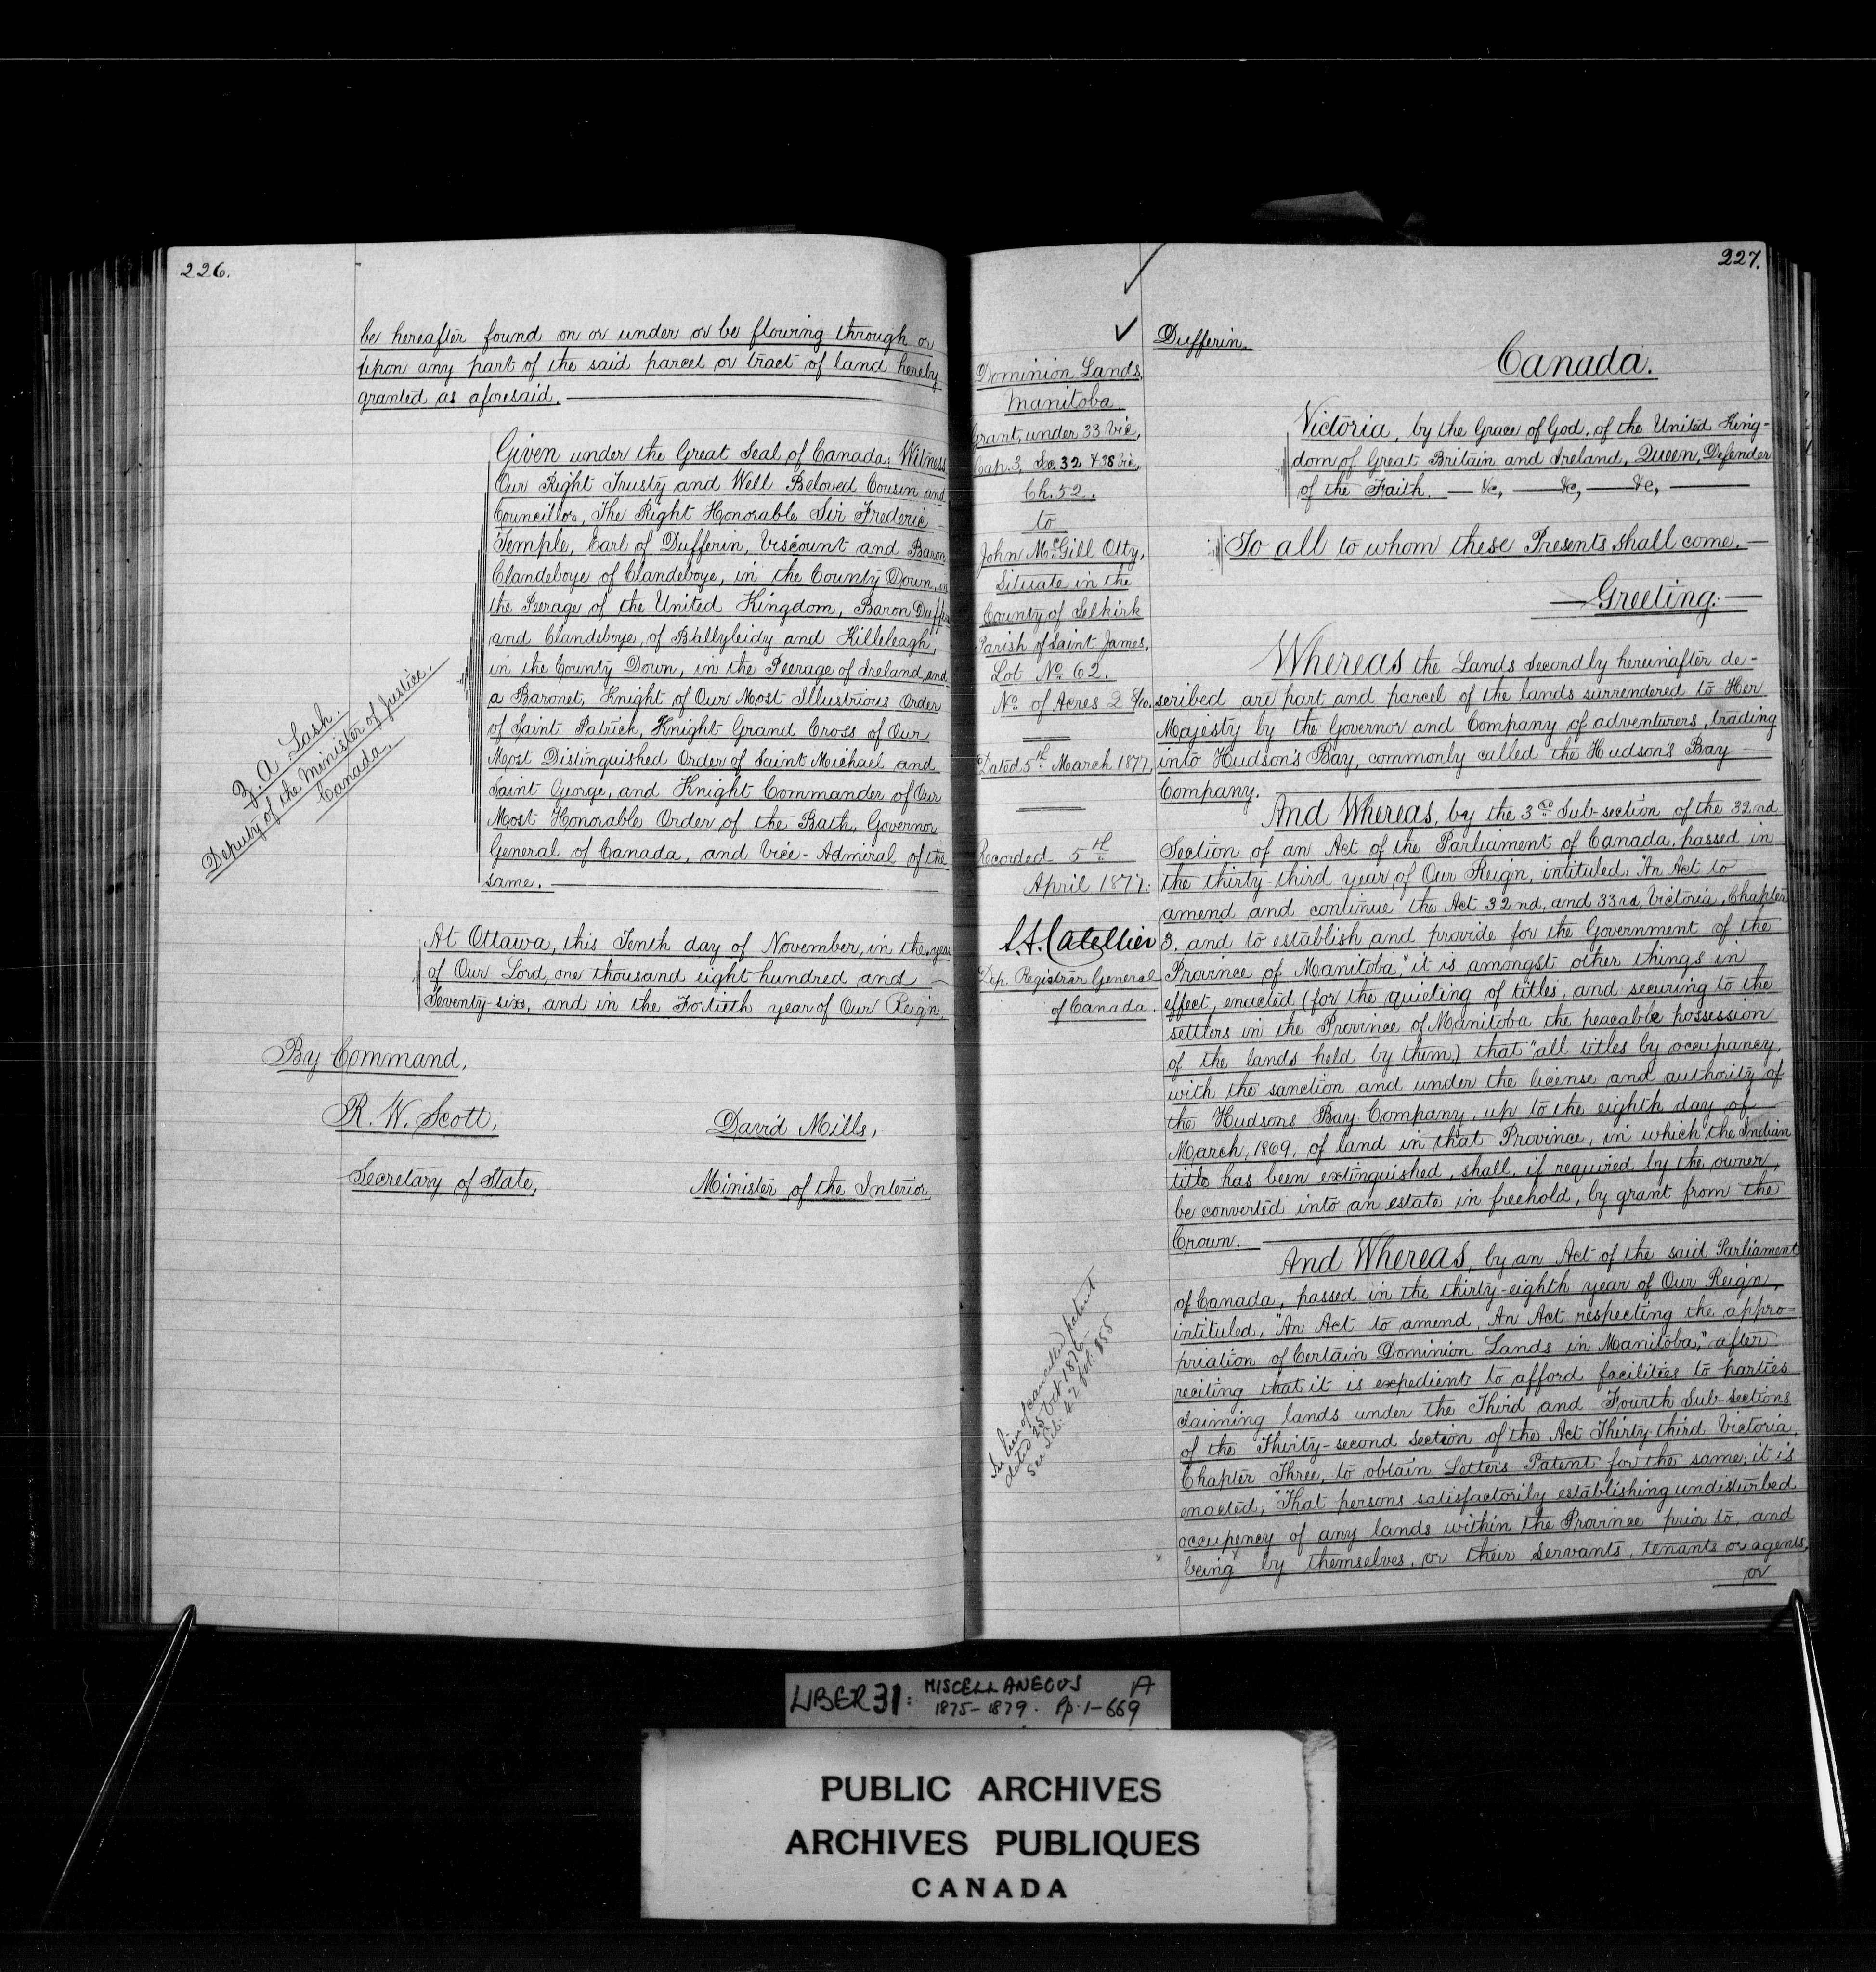 226.
be hereafter found on or under or be flowing through or
upon any part of the said parcel or tract of land hereby
granted as aforesaid.
Given under the Great Seal of Canada: Witness
Our Right Trusty and Well Beloved Cousin and
Councillor, The Right Honorable Sir Frederic
Temple, Earl of Dufferin, Viscount and Baron
Clandeboye of Clandeboye, in the County Down, in
the Peerage of the United Kingdom, Baron Dufferin
and Clandeboye, of Ballyleidy and Killeleagh,
in the County Down, in the Peerage of Ireland, and
a Baronet, Knight of Our Most Illustrious Order
of Saint Patrick, Knight Grand Cross of Our
Most Distinguished Order of Saint Michael and
Saint George, and Knight Commander of Our
Most Honorable Order of the Bath, Governor
General of Canada, and Vice-Admiral of the
same.
Z. A. Lash.
Deputy of the Minister of Justice.
Canada.
At Ottawa, this Tenth day of November, in the year
of Our Lord, one thousand eight hundred and
Seventy-six, and in the Fortieth year of Our Reign.
By Command,
R. W. Scott,
Secretary of State,
David Mills,
Minister of the Interior,
227.
Dominion Lands,
Manitoba
Grant, under 33 Vic,
Cap. 3, Sec 32 & 38 Vic,
Ch. 52.
to
John McGill Otty,
Situate in the
County of Selkirk
Parish of Saint James,
Lot No 62.
No of Acres 2 8/10.
Dated 5th March 1877,
Recorded 5th
April 1877.
L.A. Catellier
Dep. Registrar General
of Canada.
In lieu of cancelled patent
dated 25 Oct 1876
See Lib: 42 fol: 355
Dufferin.
Canada.
Victoria, by the Grace of God, of the United King-
dom of Great Britain and Ireland, Queen, Defender
of the Faith, — &c, — &c, — &c, —
To all to whom these Presents shall come, —
— Greeting: —
Whereas the Lands Secondly hereinafter de-
scribed are part and parcel of the lands surrendered to Her
Majesty by the Governor and Company of adventurers, trading
into Hudson's Bay, commonly called the Hudson's Bay
Company.
And Whereas, by the 3rd Sub-section of the 32nd
Section of an Act of the Parliament of Canada, passed in
the thirty-third year of Our Reign, intituled: "An Act to
amend and continue the Act 32nd, and 33rd, Victoria, Chapter
3, and to establish and provide for the Government of the
Province of Manitoba," it is amongst other things in
effect, enacted (for the quieting of titles, and securing to the
settlers in the Province of Manitoba the peacable possession
of the lands held by them,) that "all titles by occupancy,
with the sanction and under the license and authority of
the Hudsons Bay Company, up to the eighth day of
March, 1869, of land in that Province, in which the Indian
title has been extinguished, shall, if required by the owner,
be converted into an estate in freehold, by grant from the
Crown.
And Whereas, by an Act of the said Parliament
of Canada, passed in the thirty-eighth year of Our Reign,
intituled, "An Act to amend, An Act respecting the appro=
priation of Certain Dominion Lands in Manitoba," after
reciting that it is expedient to afford facilities to parties
claiming lands under the Third and Fourth Sub-sections
of the Thirty-second Section of the Act Thirty-third Victoria,
Chapter Three, to obtain Letters Patent for the same, it is
enacted, "That persons satisfactorily establishing undisturbed
occupency of any lands within the Province prior to, and
being by themselves, or their servants, tenants or agents,
or
LIBER 31: MISCELLANEOUS A
1875-1879. Pp. 1-669
PUBLIC ARCHIVES
ARCHIVES PUBLIQUES
CANADA